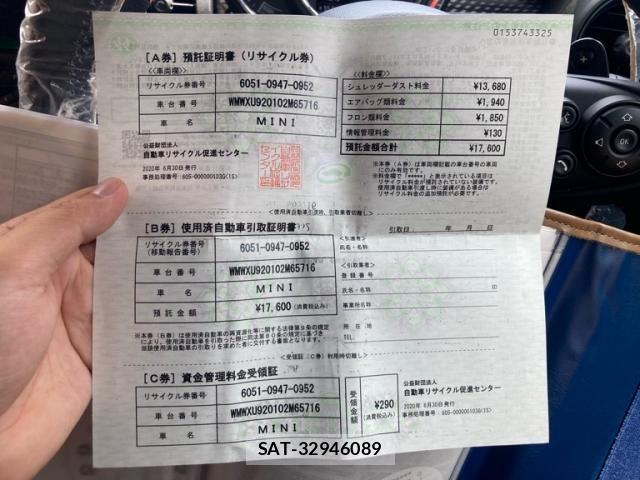 0153743325
[A券] 預託証明書 (リサイクル券)
<<車両欄>>
リサイクル券番号 6051-0947-0952
車台番号 WMWXU920102M65716
車 名 MINI
公益財団法人
自動車リサイクル促進センター
2020年 6月30日発行
<<料金欄>>
シュレッダーダスト料金 ¥13,680
エアバッグ類料金 ¥1,940
フロン類料金 ¥1,850
情報管理料金 ¥130
預託金額合計 ¥17,600
※本券 (A券) は車両欄記載の車台番号の車両
にのみ有効です。
[B券] 使用済自動車引取証明書
リサイクル券番号
(移動報告番号) 6051-0947-0952
車台番号 WMWXU920102M65716
車 名 MINI
預託金額 ¥17,600 (消費税込み)
引取日 年 月 日
<引渡者>
氏名・名称
<引取業者>
登録番号
氏名・名称 印
事業所名称
所在地
TEL
<受領証 (C券) 利用時切離し>
[C券] 資金管理料金受領証
リサイクル券番号 6051-0947-0952
車台番号 WMWXU920102M65716
車 名 MINI
受領金額 ¥290
(消費税込み)
公益財団法人
自動車リサイクル促進センター
2020年 6月30日発行
OK
SAT-32946089